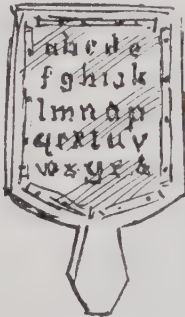 abcde
fghijk
lmnop
qrstuv
wxyz&